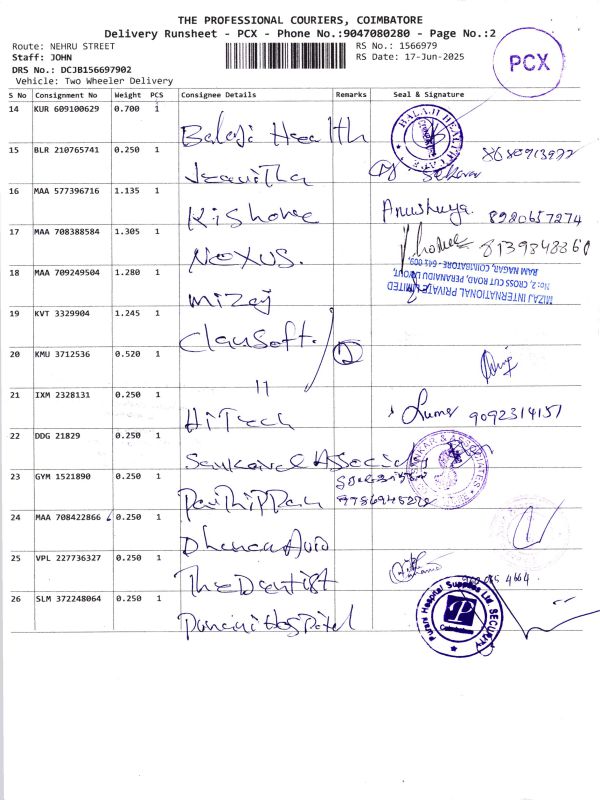 THE PROFESSIONAL COURIERS, COIMBATORE
Delivery Runsheet - PCX - Phone No.:9047080280 - Page No.:2
Route: NEHRU STREET
RS No.: 1566979
Staff: JOHN
RS Date: 17-Jun-2025
DRS No.: DCJB156697902
Vehicle: Two Wheeler Delivery
PCX
S No Consignment No Weight PCS Consignee Details Remarks Seal & Signature
14 KUR 609100629 0.700 1 Balaji Health
BALAJI HEALTH CARE
15 BLR 210765741 0.250 1
16 MAA 577396716 1.135 1 Kishore Anushuya 8920657274
17 MAA 708388584 1.305 1 NEXUS.
18 MAA 709249504 1.280 1 Mizaj
MIZAJ INTERNATIONAL PRIVATE LIMITED
No: 2, CROSS CUT ROAD, PERANAIDU LAYOUT,
RAM NAGAR, COIMBATORE - 641 009.
19 KVT 3329904 1.245 1 Clausoft.
20 KMU 3712536 0.520 1 11
21 IXM 2328131 0.250 1 HiTech 9092314151
22 DDG 21829 0.250 1 Sankaral Associates
& ASSOCIATES
23 GYM 1521890 0.250 1
24 MAA 708422866 0.250 1
25 VPL 227736327 0.250 1 The Dentist
26 SLM 372248064 0.250 1 Purani Hospital
Purani Hospital Supplies Ltd SECURITY
P
Coimbatore